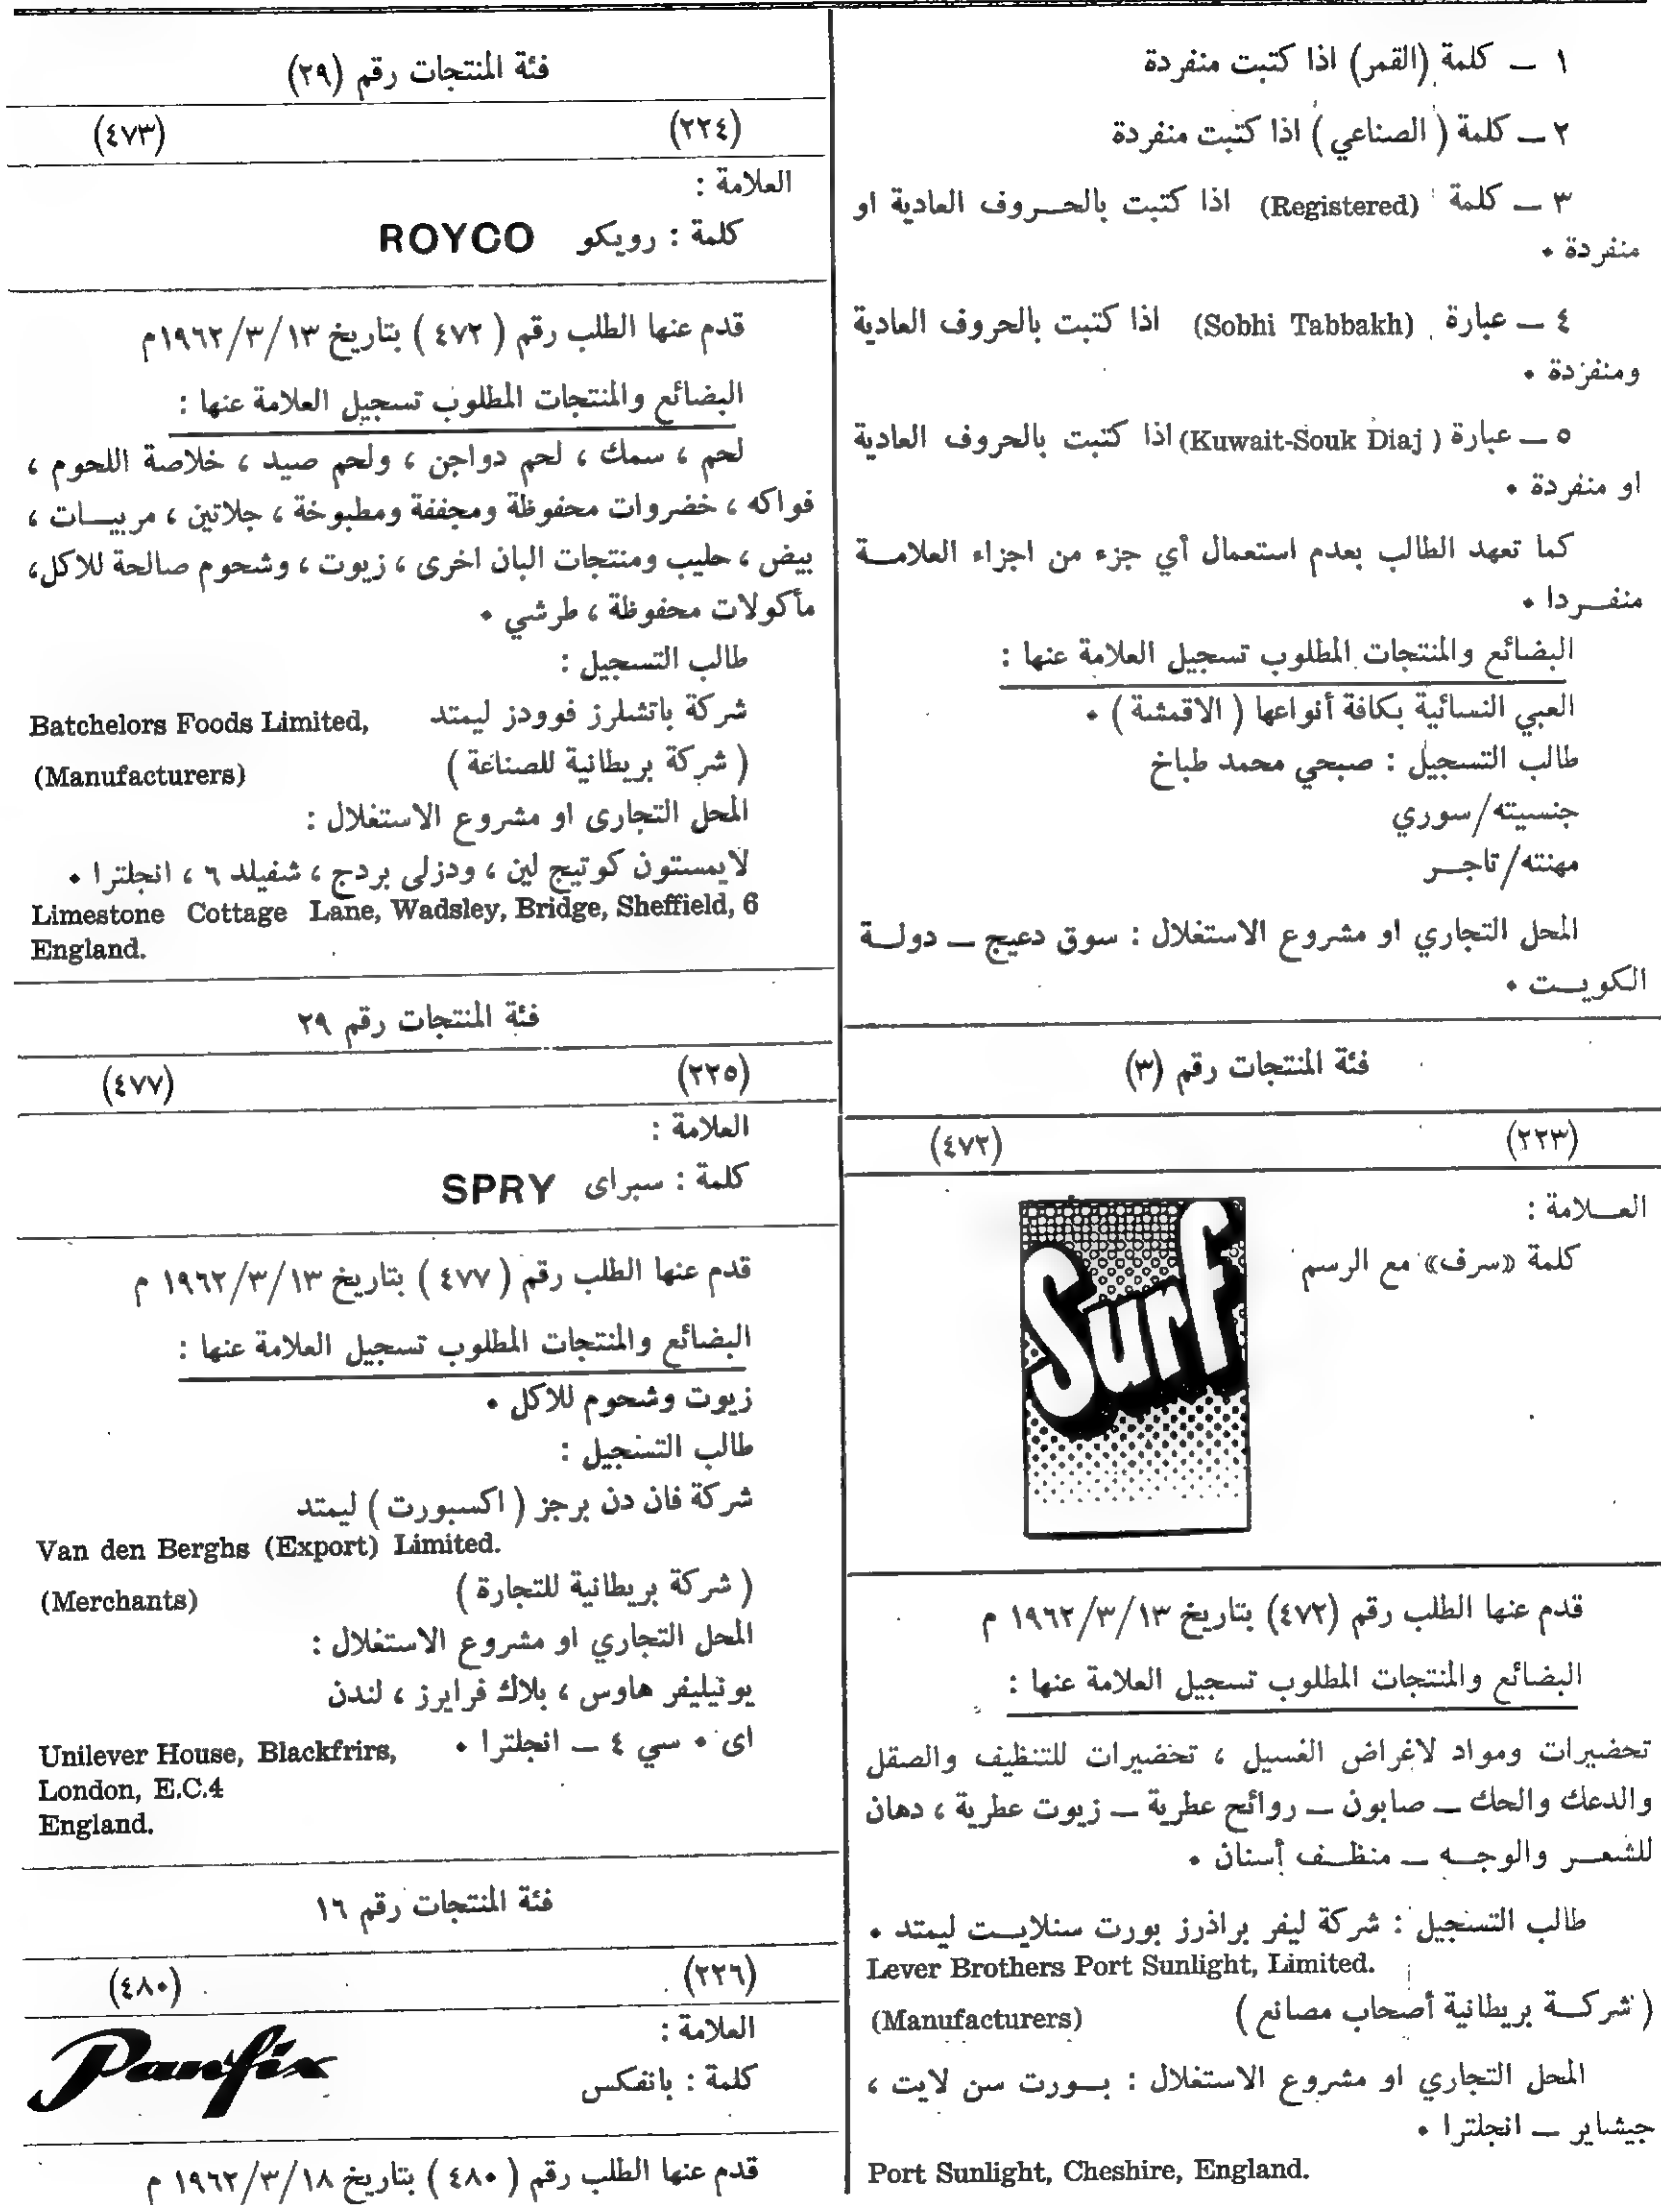 ١ — كلمة (القمر) اذا كتبت منفردة
٢ — كلمة ( الصناعي ) اذا كتبت منفردة
٣ — كلمة (Registered) اذا كتبت بالحـــروف العادية او
منفردة ٠
٤ — عبارة (Sobhi Tabbakh) اذا كتبت بالحروف العادية
ومنفردة ٠
٥ — عبارة (Kuwait-Souk Diaj ) اذا كتبت بالحروف العادية
او منفردة ٠
كما تعهد الطالب بعدم استعمال أي جزء من اجزاء العلامـــة
منفـــردا ٠
البضائع والمنتجات المطلوب تسجيل العلامة عنها :
العبي النسائية بكافة أنواعها ( الاقمشة ) ٠
طالب التسجيل : صبحي محمد طباخ
جنسيته/سوري
مهنته/تاجـــر
المحل التجاري او مشروع الاستغلال : سوق دعيج — دولـــة
الكويـــت ٠
فئة المنتجات رقم (٣)
(٢٢٣) (٤٧٢)
العـــلامة :
كلمة «سرف» مع الرسم
Surf
قدم عنها الطلب رقم (٤٧٢) بتاريخ ١٩٦٢/٣/١٣ م
البضائع والمنتجات المطلوب تسجيل العلامة عنها :
تحضيرات ومواد لاغراض الغسيل ، تحضيرات للتنظيف والصقل
والدعك والحك — صابون — روائح عطرية — زيوت عطرية ، دهان
للشعـــر والوجـــه — منظـــف أسنان ٠
طالب التسجيل : شركة ليفر براذرز بورت سنلايـــت ليمتد ٠
Lever Brothers Port Sunlight, Limited.
( شركـــة بريطانية أصحاب مصانع ) (Manufacturers)
المحل التجاري او مشروع الاستغلال : بـــورت سن لايت ،
جيشاير — انجلترا ٠
Port Sunlight, Cheshire, England.
فئة المنتجات رقم (٢٩)
(٢٢٤) (٤٧٣)
العلامة :
كلمة : رويكو ROYCO
قدم عنها الطلب رقم ( ٤٧٢ ) بتاريخ ١٩٦٢/٣/١٣م
البضائع والمنتجات المطلوب تسجيل العلامة عنها :
لحم ، سمك ، لحم دواجن ، ولحم صيد ، خلاصة اللحوم ،
فواكه ، خضروات محفوظة ومجففة ومطبوخة ، جلاتين ، مربيـــات ،
بيض ، حليب ومنتجات البان اخرى ، زيوت ، وشحوم صالحة للاكل،
مأكولات محفوظة ، طرشي ٠
طالب التسجيل :
شركة باتشلرز فوودز ليمتد Batchelors Foods Limited,
( شركة بريطانية للصناعة ) (Manufacturers)
المحل التجارى او مشروع الاستغلال :
لايمستون كوتيج لين ، ودزلى بردج ، شفيلد ٦ ، انجلترا ٠
Limestone Cottage Lane, Wadsley, Bridge, Sheffield, 6
England.
فئة المنتجات رقم ٢٩
(٢٢٥) (٤٧٧)
العلامة :
كلمة : سبراى SPRY
قدم عنها الطلب رقم ( ٤٧٧ ) بتاريخ ١٩٦٢/٣/١٣ م
البضائع والمنتجات المطلوب تسجيل العلامة عنها :
زيوت وشحوم للاكل ٠
طالب التسجيل :
شركة فان دن برجز ( اكسبورت ) ليمتد
Van den Berghs (Export) Limited.
( شركة بريطانية للتجارة ) (Merchants)
المحل التجاري او مشروع الاستغلال :
يونيليفر هاوس ، بلاك فرايرز ، لندن
اى ٠ سي ٤ — انجلترا ٠ Unilever House, Blackfrirs,
London, E.C.4
England.
فئة المنتجات رقم ١٦
(٢٢٦) (٤٨٠)
العلامة :
كلمة : بانفكس Panfix
قدم عنها الطلب رقم ( ٤٨٠ ) بتاريخ ١٩٦٢/٣/١٨ م